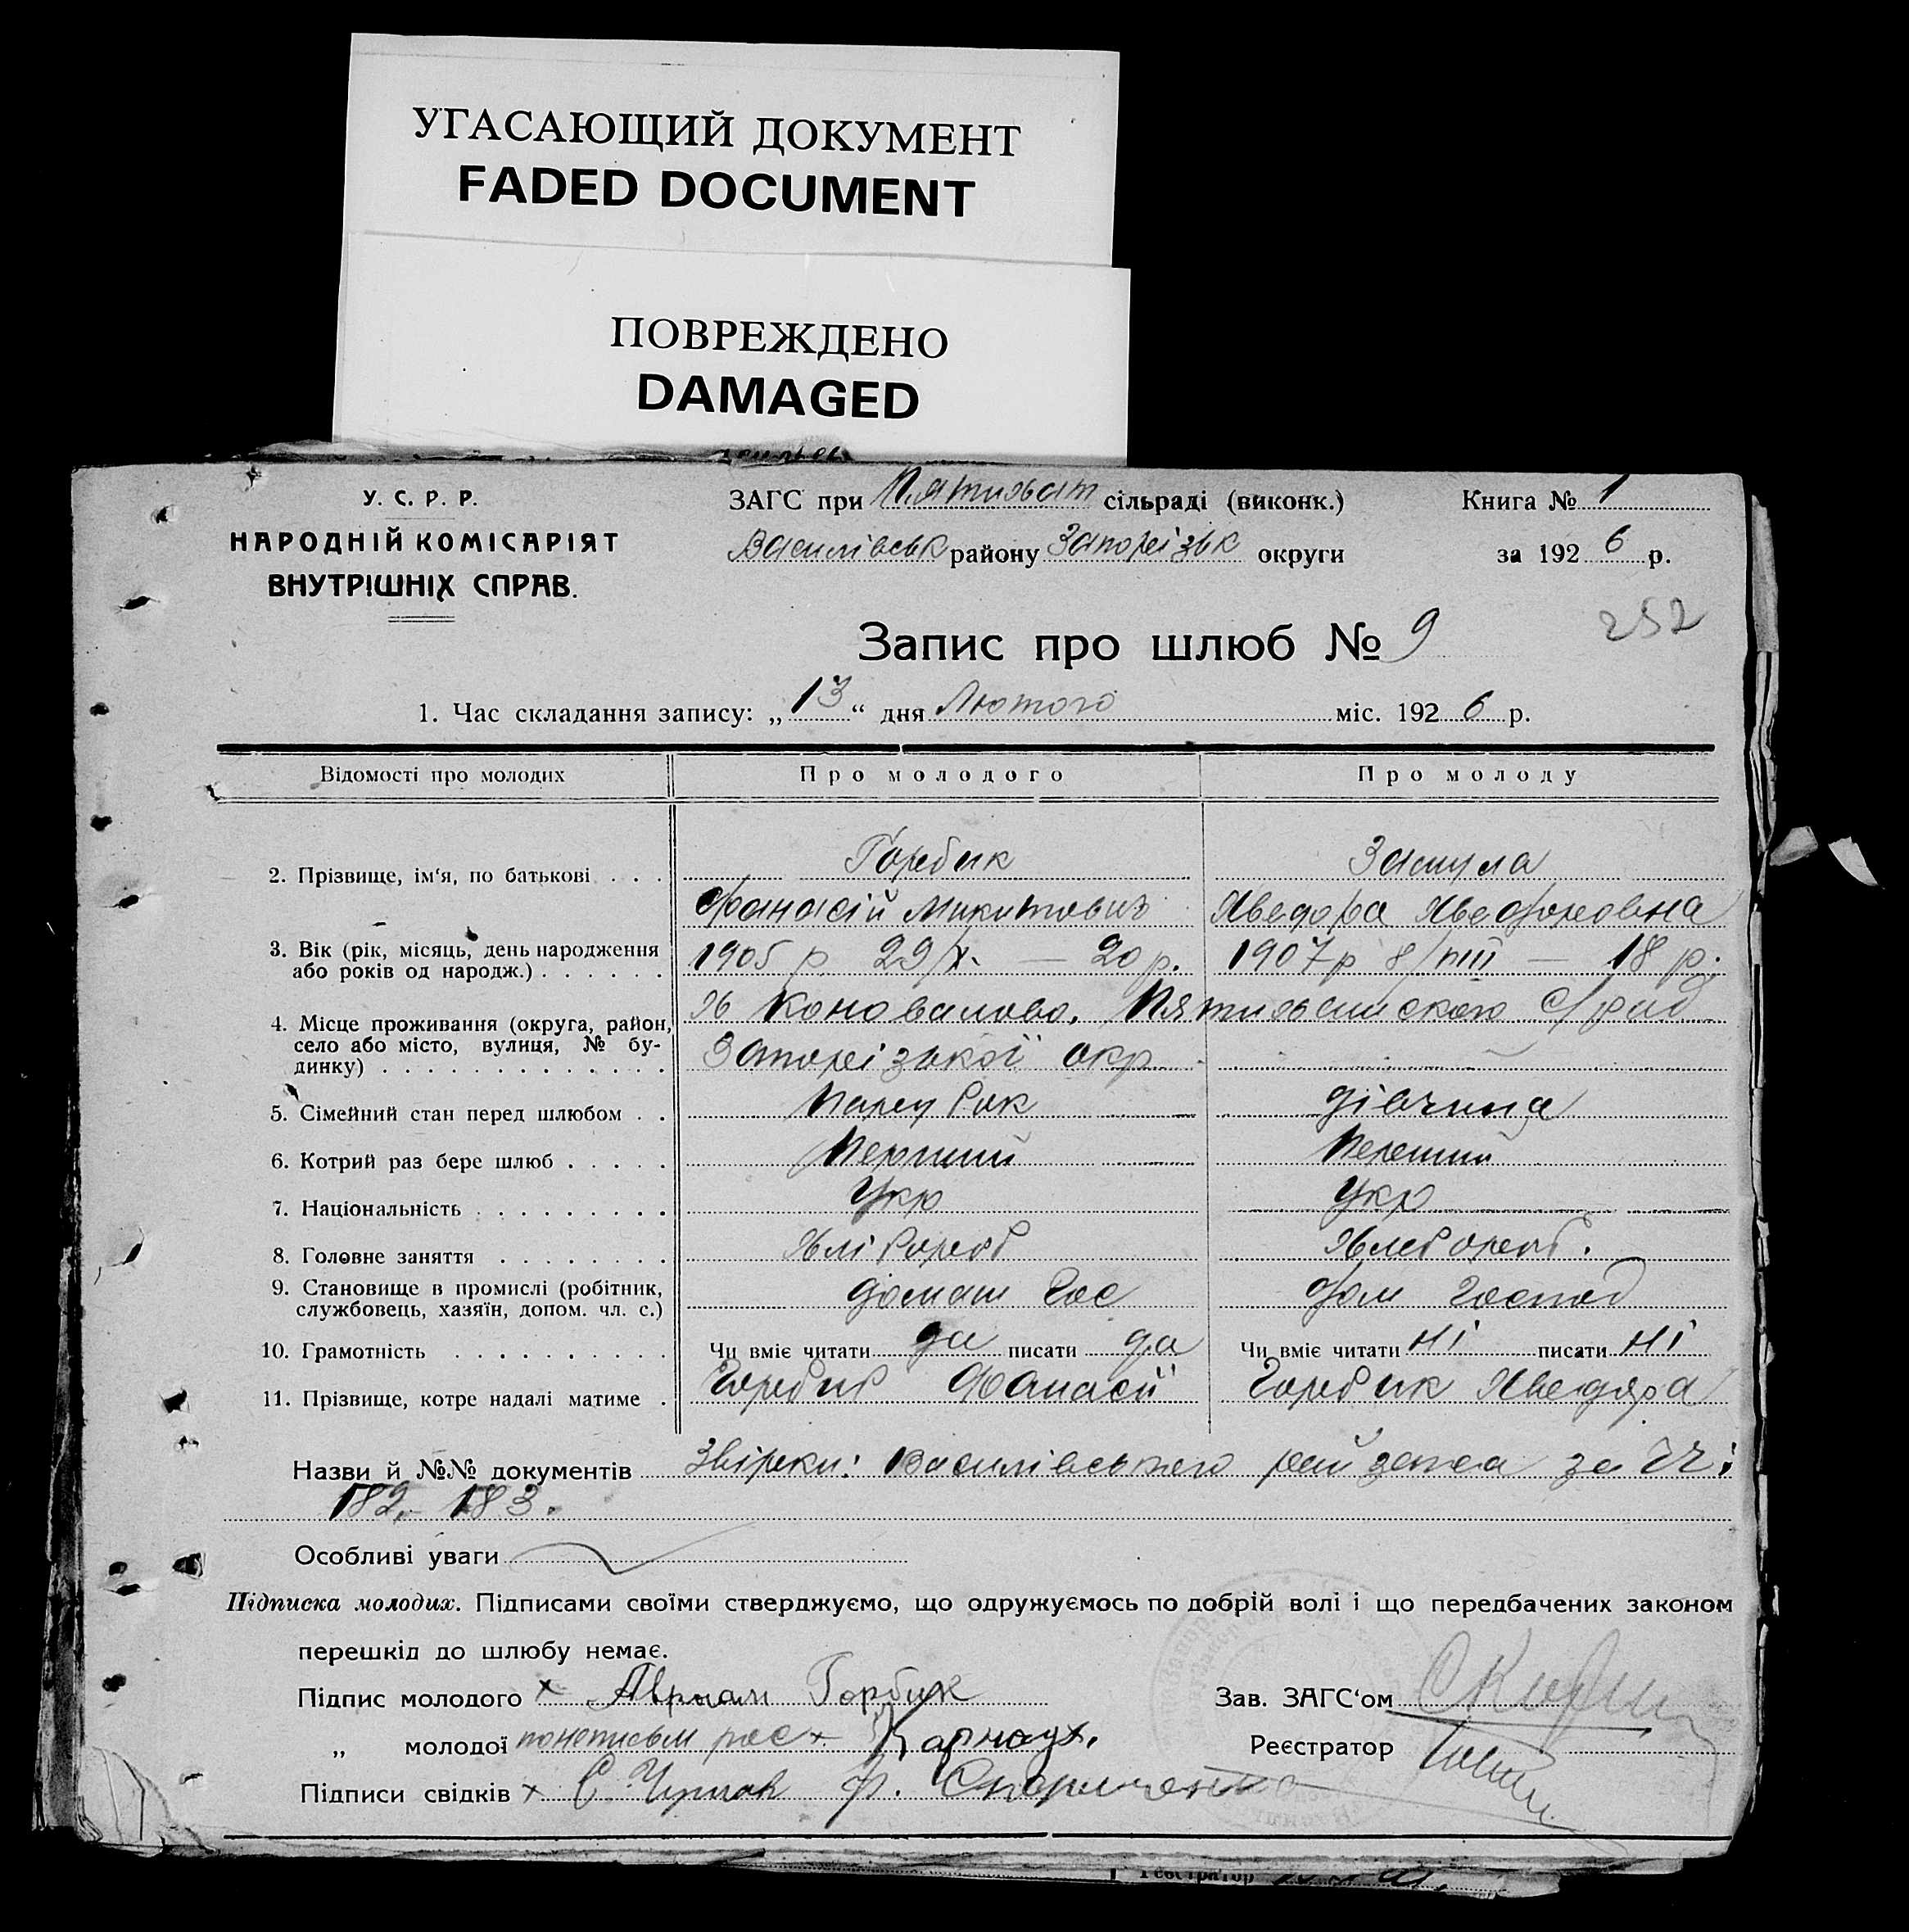 УГАСАЮЩИЙ ДОКУМЕНТ
FADED DOCUMENT
ПОВРЕЖДЕНО
DAMAGED
У. С. Р. Р.
НАРОДНІЙ КОМІСАРІЯТ
ВНУТРІШНІХ СПРАВ.
ЗАГС при Пятихат сільраді (виконк.)
Василівськ району Запорізьк округи
Книга № 1
за 1926 р.
252
Запис про шлюб № 9
1. Час складання запису: „13“ дня Лютого міс. 1926 р.
Відомості про молодих Про молодого Про молоду
2. Прізвище, ім‘я, по батькові . . . Горбик
Фанасій Микитович Явдора
3. Вік (рік, місяць, день народження або років од народж.) . . . . . . 1905 р 29/X. — 20 р. 1907 р 8/VIII — 18 р.
4. Місце проживання (округа, район, село або місто, вулиця, № будинку) . . . . . . . . . . . . . х Коновалово. Пятихатского с/рад
Запорізької окр
5. Сімейний стан перед шлюбом . . Парубок дівчина
6. Котрий раз бере шлюб . . . . . Перший Перший
7. Національність . . . . . . . . . Укр Укр
8. Головне заняття . . . . . . . . Хлібороб Хлебороб.
9. Становище в промислі (робітник, службовець, хазяїн, допом. чл. с.) домаш Гос дом Господ
10. Грамотність . . . . . . . . . . Чи вміє читати да писати да Чи вміє читати ні писати ні
11. Прізвище, котре надалі матиме . Горбик Фанасій Горбик Явдора
Назви й №№ документів Звірки: Василівського райзагса за ЧЧ:
182,- 183.
Особливі уваги
Підписка молодих. Підписами своїми стверджуємо, що одружуємось по добрій волі і що передбачених законом
перешкід до шлюбу немає.
Підпис молодого х Горбик
Зав. ЗАГС‘ом
„ молодої Карнаух.
Реєстратор
Підписи свідків х С.
Реєстратор